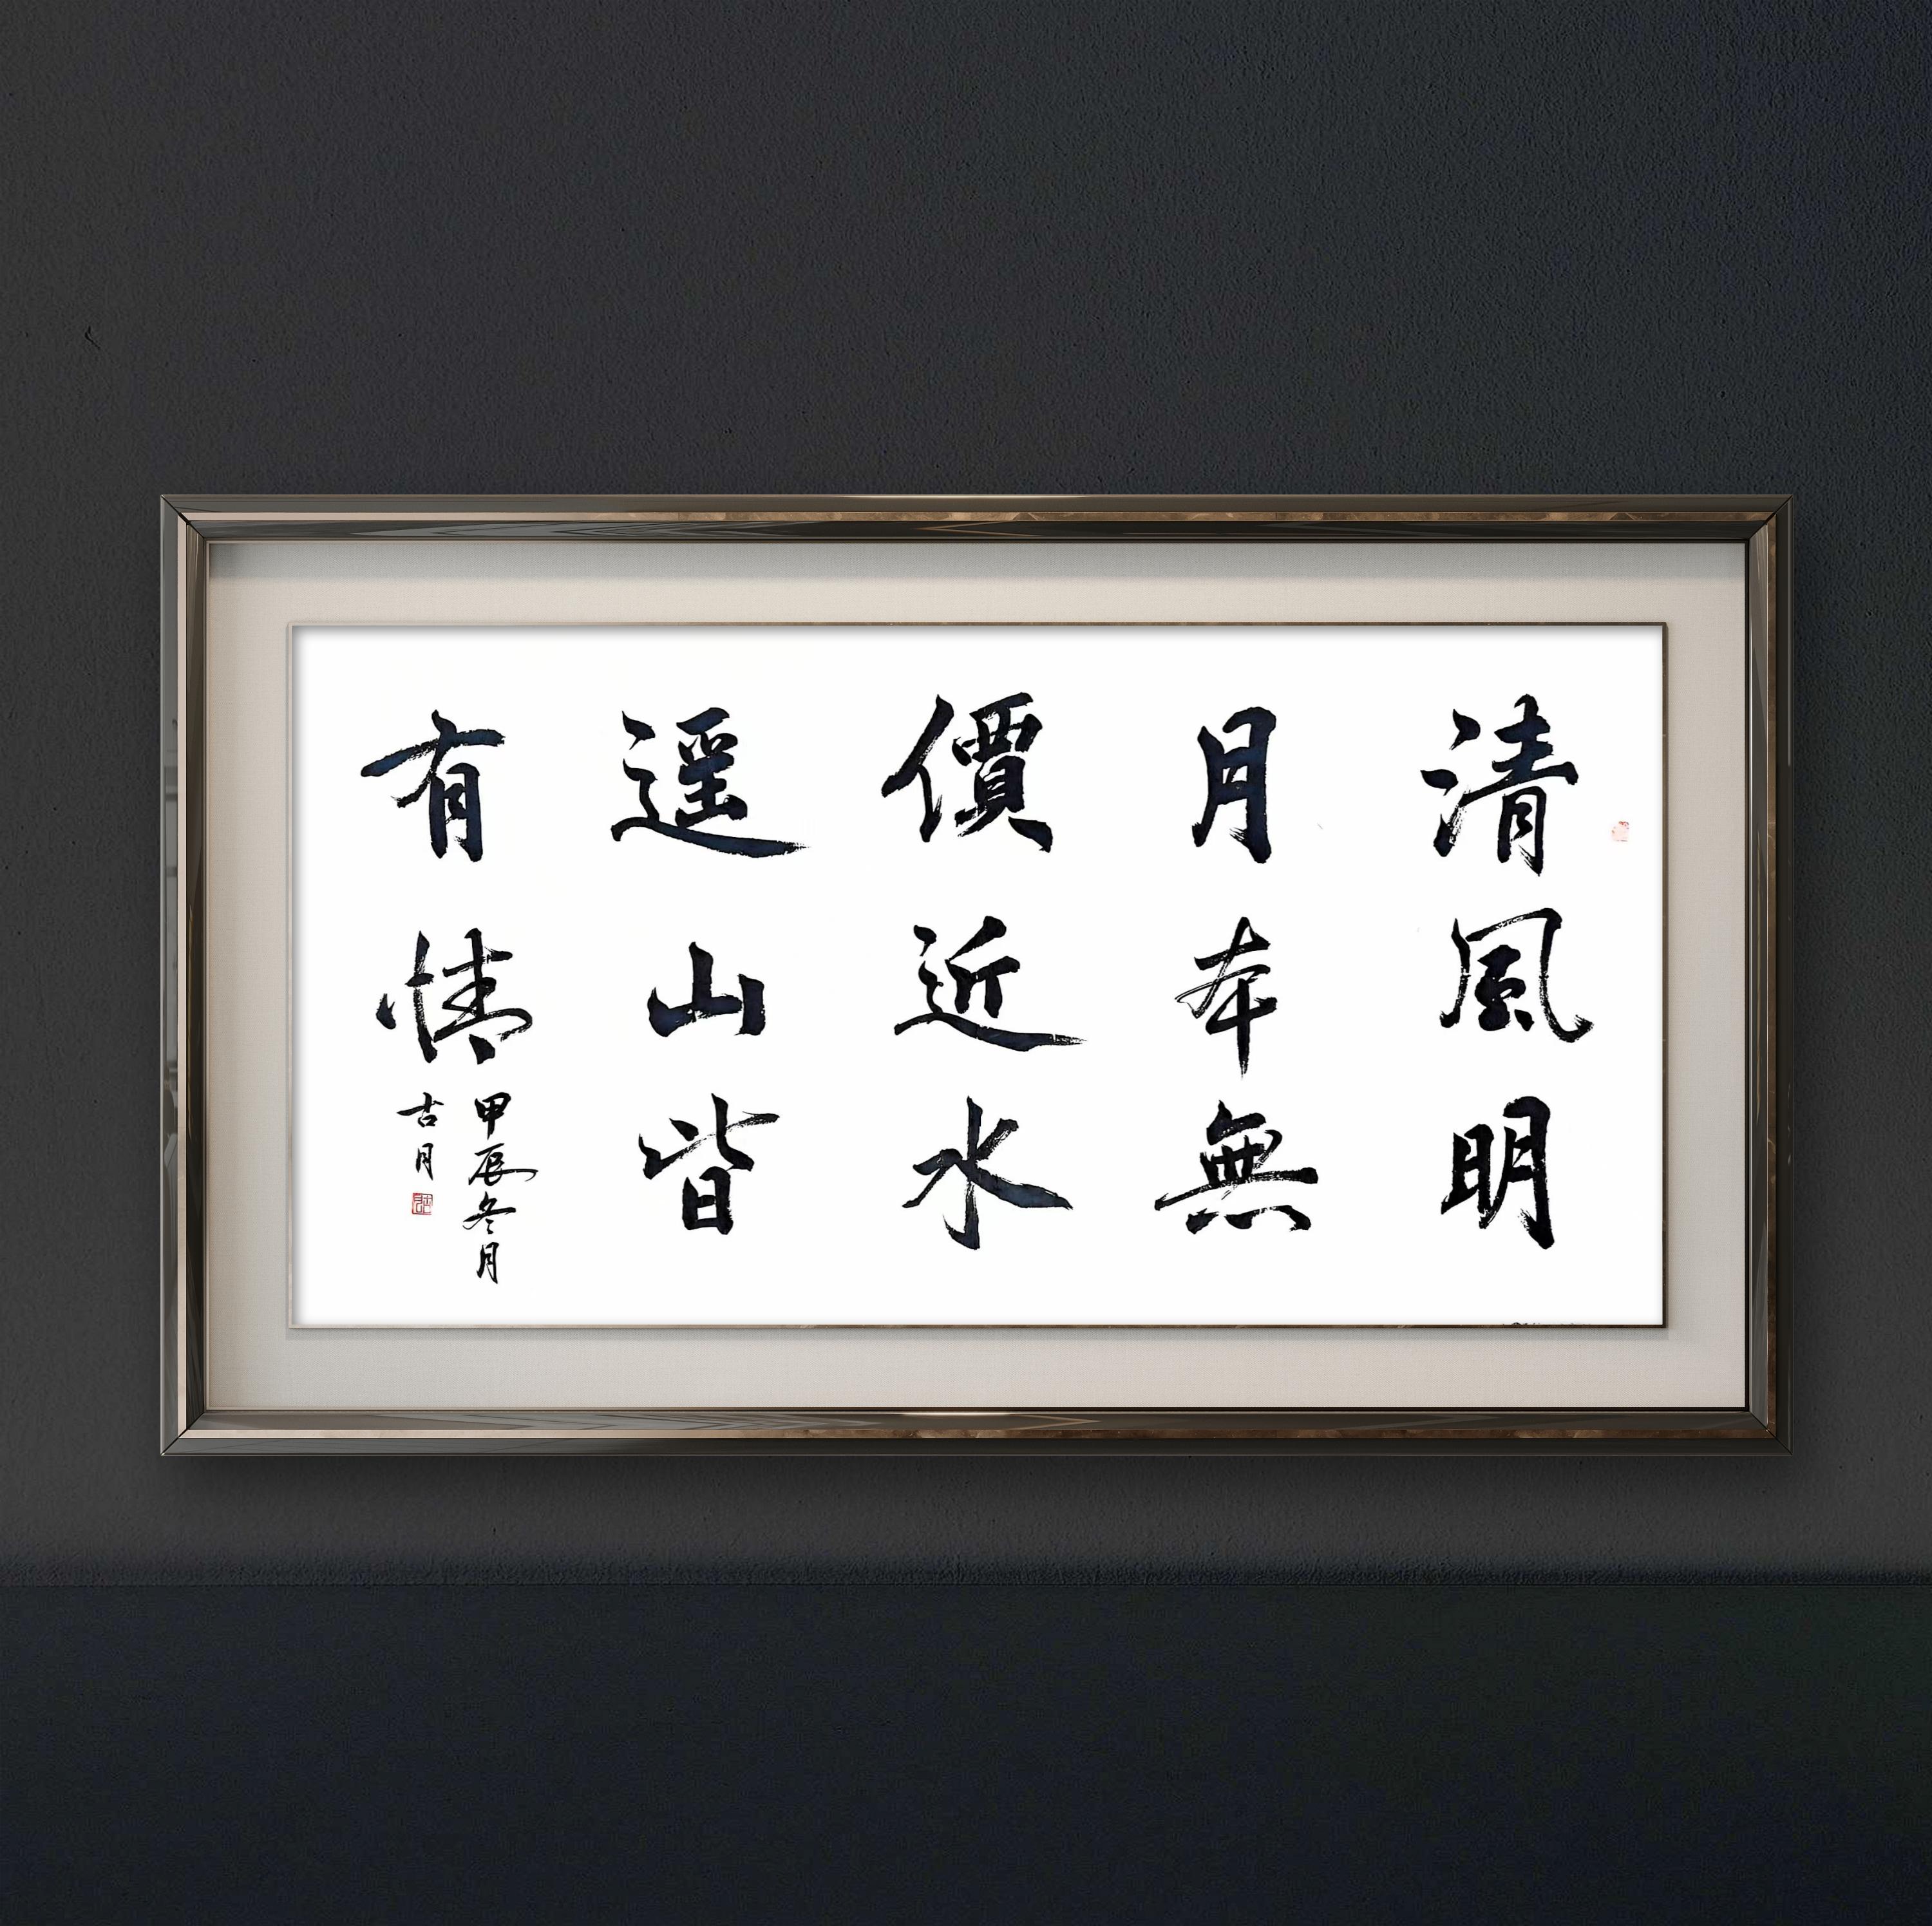 清風明
月本無
價近水
遥山皆
有情
甲辰冬月
古月